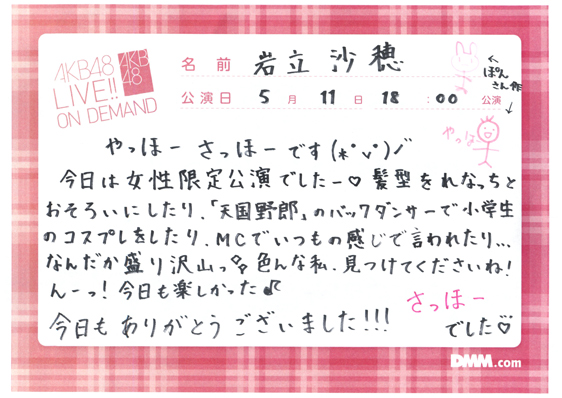 AKB48
LIVE!!
ON DEMAND
AKB
48
名前 岩立 沙穂
←
ぽん
さん作
↓
公演日 5月 11日 18:00 公演
やっほ
やっほー さっほーです(*˙ᵕ˙)ノ
今日は女性限定公演でしたー♡ 髪型をれなっちと
おそろいにしたり、「天国野郎」のバックダンサーで小学生
のコスプレをしたり、MCでいつもの感じで言われたり…
なんだか盛り沢山っ 色んな私、見つけてくださいね!
んーっ! 今日も楽しかった♪
さっほー
今日も ありがとう ございました!!! でした♡
DMM.com